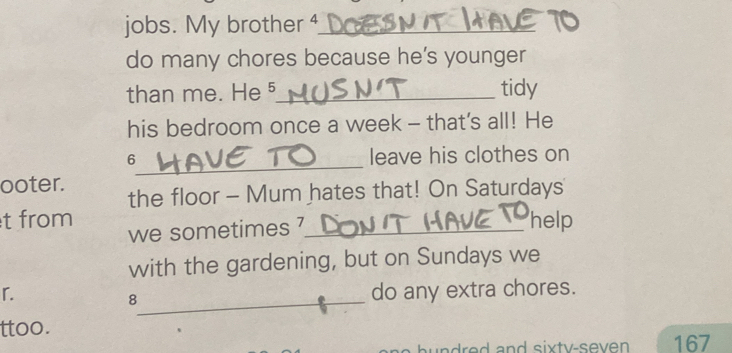 jobs. My brother ⁴ DOESN'T HAVE TO
do many chores because he's younger
than me. He ⁵ MUSN'T tidy
his bedroom once a week – that's all! He
⁶ HAVE TO leave his clothes on
ooter.
the floor – Mum hates that! On Saturdays
t from
we sometimes ⁷ DON'T HAVE TO help
with the gardening, but on Sundays we
r.
⁸ do any extra chores.
ttoo.
one hundred and sixty-seven 167